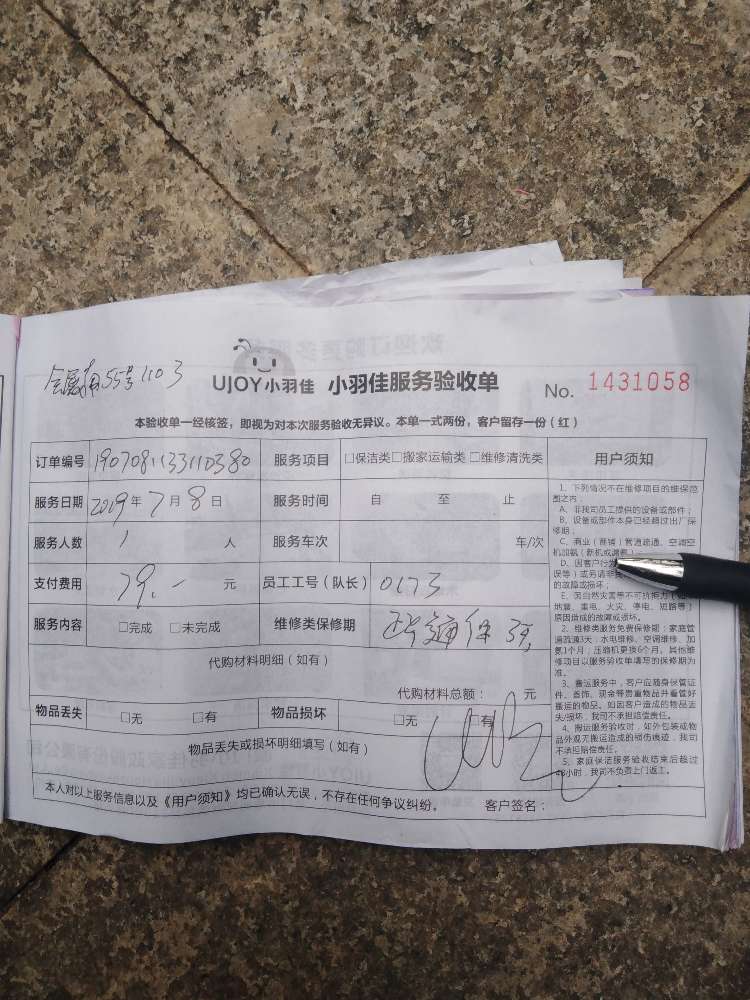 55号1103
UJOY小羽佳 小羽佳服务验收单 No. 1431058
本验收单一经核签，即视为对本次服务验收无异议。本单一式两份，客户留存一份（红）
订单编号 1907081133110380 服务项目 □保洁类□搬家运输类□维修清洗类 用户须知
服务日期 2019年7月8日 服务时间 自 至 止
服务人数 1 人 服务车次 车/次
支付费用 79.- 元 员工工号（队长） 0173
服务内容 □完成 □未完成 维修类保修期
代购材料明细（如有）
代购材料总额： 元
物品丢失 □无 □有 物品损坏 □无 □有
物品丢失或损坏明细填写（如有）
本人对以上服务信息以及《用户须知》均已确认无误，不存在任何争议纠纷。 客户签名：
1、下列情况不在维修项目的维保范
围之内：
A、非我司员工提供的设备或部件；
B、设备或部件本身已经超过出厂保
修期；
C、商业（商铺）管道疏通、空调空
机加氨（新机或
D、因客户
误等）或另请
的故障或损坏；
E、因自然灾害等不可抗拒力
地震、雷电、火灾、停电、短路等）
原因造成的故障或损坏。
2、维修类服务免费保修期：家庭管
道疏流3天；水电维修、空调维修、加
氨1个月；压缩机更换6个月。其他维
修项目以服务验收单填写的保修期为
准。
3、搬运服务中，客户应随身保管证
件、首饰、现金等贵重物品并看管好
搬运的物品。如因客户造成的物品丢
失/损坏，我司不承担赔偿责任。
4、搬运服务验收时，如外包装或物
品外观无搬运造成的损伤痕迹，我司
不承担赔偿责任。
5、家庭保洁服务验收结束后超过
48小时，我司不负责上门返工。